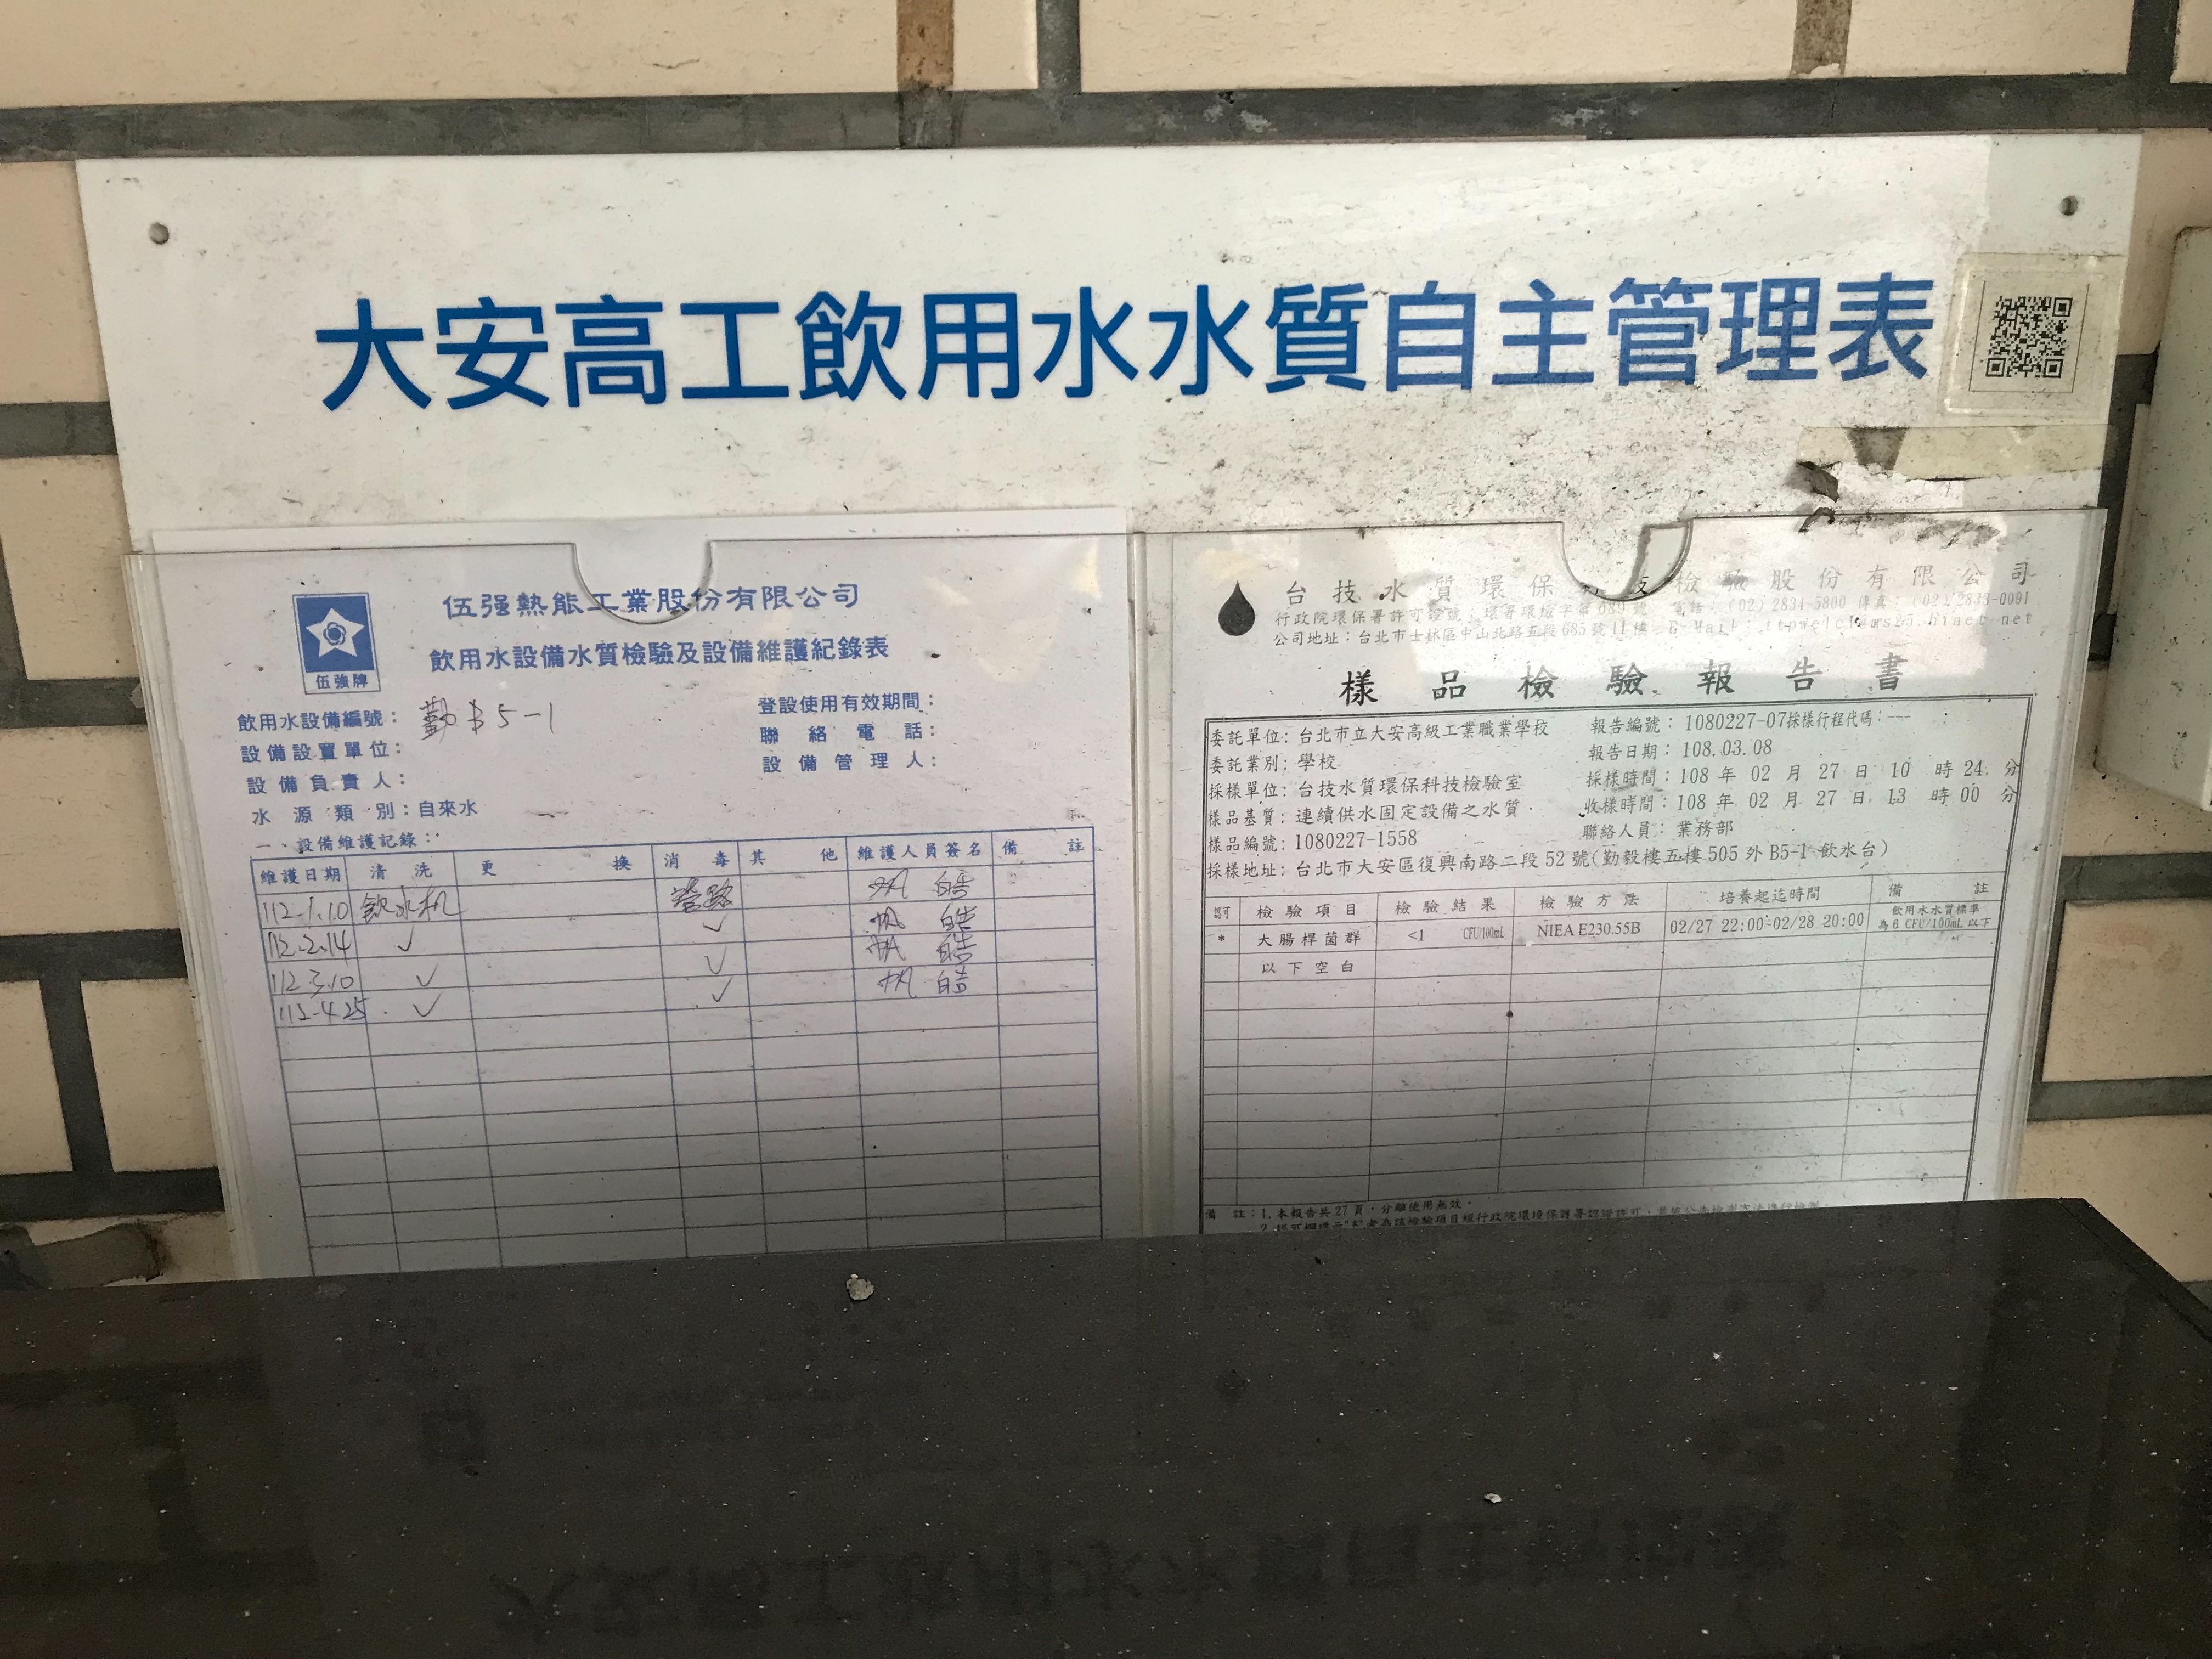 大安高工飲用水水質自主管理表
伍強牌
伍强熱能工業股份有限公司
飲用水設備水質檢驗及設備維護紀錄表
飲用水設備編號：勤B5-1
設備設置單位：
設備負責人：
水源類別：自來水
登設使用有效期間：
聯絡電話：
設備管理人：
一、設備維護記錄：
維護日期 清洗 更換 消毒 其他 維護人員簽名 備註
112.1.10 飲水机 管路
112.2.14 ✓ ✓
112.3.10 ✓ ✓
112.4.25 ✓ ✓
台技水質環保科技檢驗股份有限公司
行政院環保署許可證號：環署環檢字第039號 電話：(02) 2834-5800 傳真：(02) 2833-0091
公司地址：台北市士林區中山北路五段685號11樓 E-Mail：
樣品檢驗報告書
委託單位：台北市立大安高級工業職業學校
委託業別：學校
採樣單位：台技水質環保科技檢驗室
樣品基質：連續供水固定設備之水質
樣品編號：1080227-1558
採樣地址：台北市大安區復興南路二段52號(勤毅樓五樓505外B5-1飲水台)
報告編號：1080227-07採樣行程代碼：---
報告日期：108.03.08
採樣時間：108年02月27日10時24分
收樣時間：108年02月27日13時00分
聯絡人員：業務部
認可 檢驗項目 檢驗結果 檢驗方法 培養起迄時間 備註
* 大腸桿菌群 <1 CFU/100mL NIEA E230.55B 02/27 22:00-02/28 20:00 飲用水水質標準為6 CFU/100mL以下
以下空白
備註：1.本報告共27頁，分離使用無效。